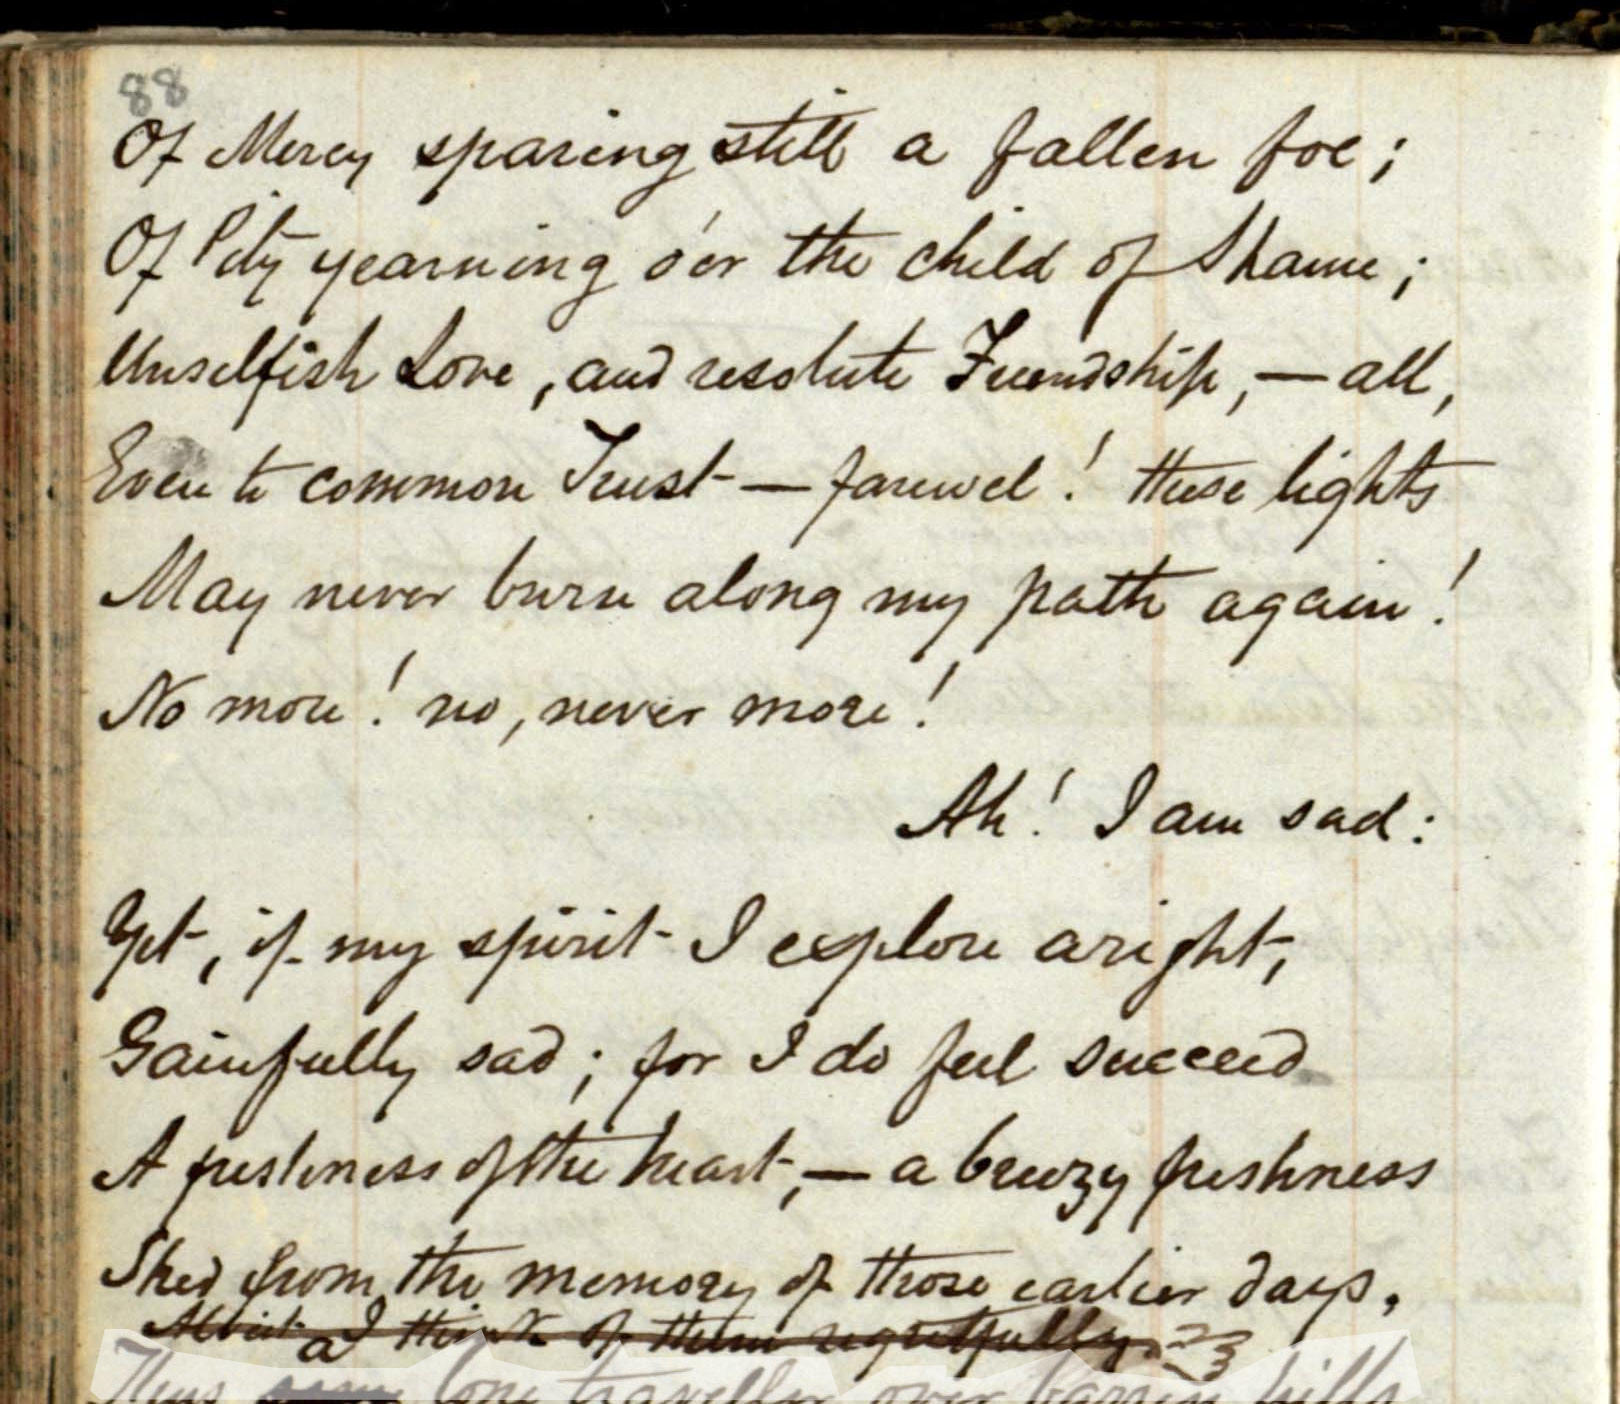 88
Of Mercy sparing still a fallen foe;
Of Pity yearning o'er the child of Shame;
Unselfish Love, and resolute Friendship,—all,
Even to common Trust—farewel! these lights
May never burn along my path again!
No more! no, never more!
Ah! I am sad:
Yet, if my spirit I explore aright,
Gainfully sad; for I do feel succeed
A freshness of the heart,—a breezy freshness
Shed from the memory of those earlier days,
Albeit I think of them regretfully.
a
Thus lone traveller over barren hills